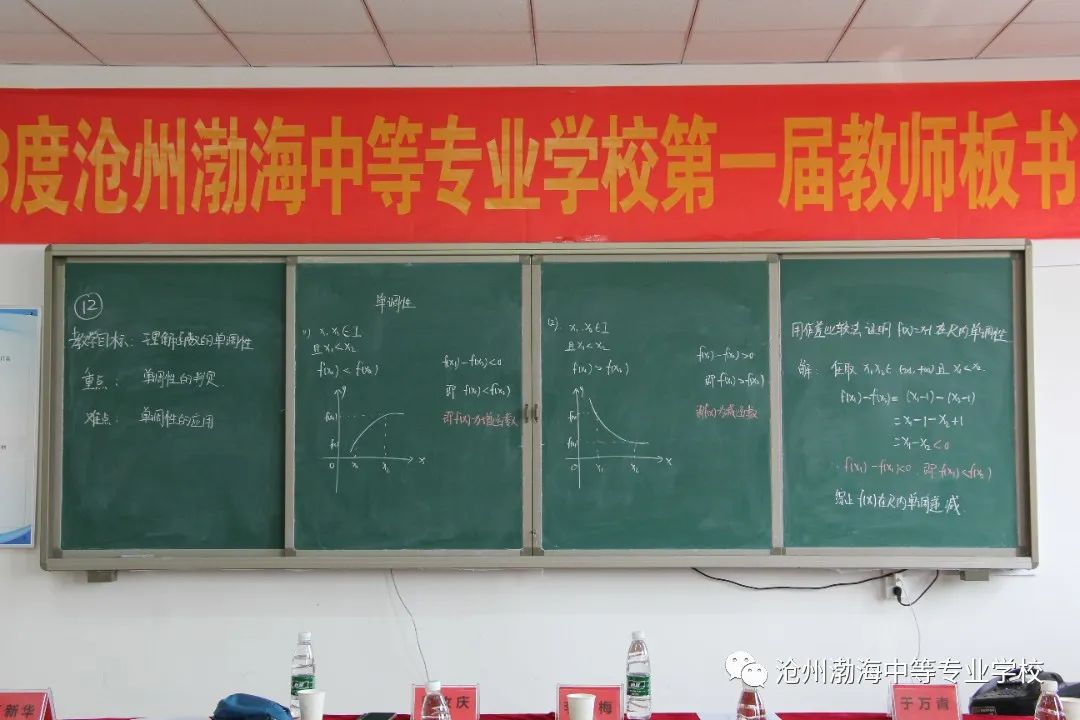 度沧州渤海中等专业学校第一届教师板书
12
教学目标：理解函数的单调性
重点：单调性的判定
难点：单调性的应用
单调性
(1) x₁, x₂∈I
且 x₁<x₂
f(x₁) < f(x₂)
f(x₁)-f(x₂)<0
即 f(x₁)<f(x₂)
即f(x)为增函数
y
f(x₂)
f(x₁)
0 x₁ x₂ x
(2). x₁, x₂∈I
且 x₁<x₂
f(x₁) > f(x₂)
f(x₁)-f(x₂)>0
即 f(x₁)>f(x₂)
即f(x)为减函数
y
f(x₁)
f(x₂)
0 x₁ x₂ x
用作差比较法证明 f(x)=x-1在R内单调性
解：任取 x₁,x₂∈(-∞,+∞)且 x₁<x₂
f(x₁)-f(x₂)=(x₁-1)-(x₂-1)
=x₁-1-x₂+1
=x₁-x₂<0
∴f(x₁)-f(x₂)<0 即f(x₁)<f(x₂)
综上 f(x)在R内单调递减
新华
庆
梅
于万青
沧州渤海中等专业学校